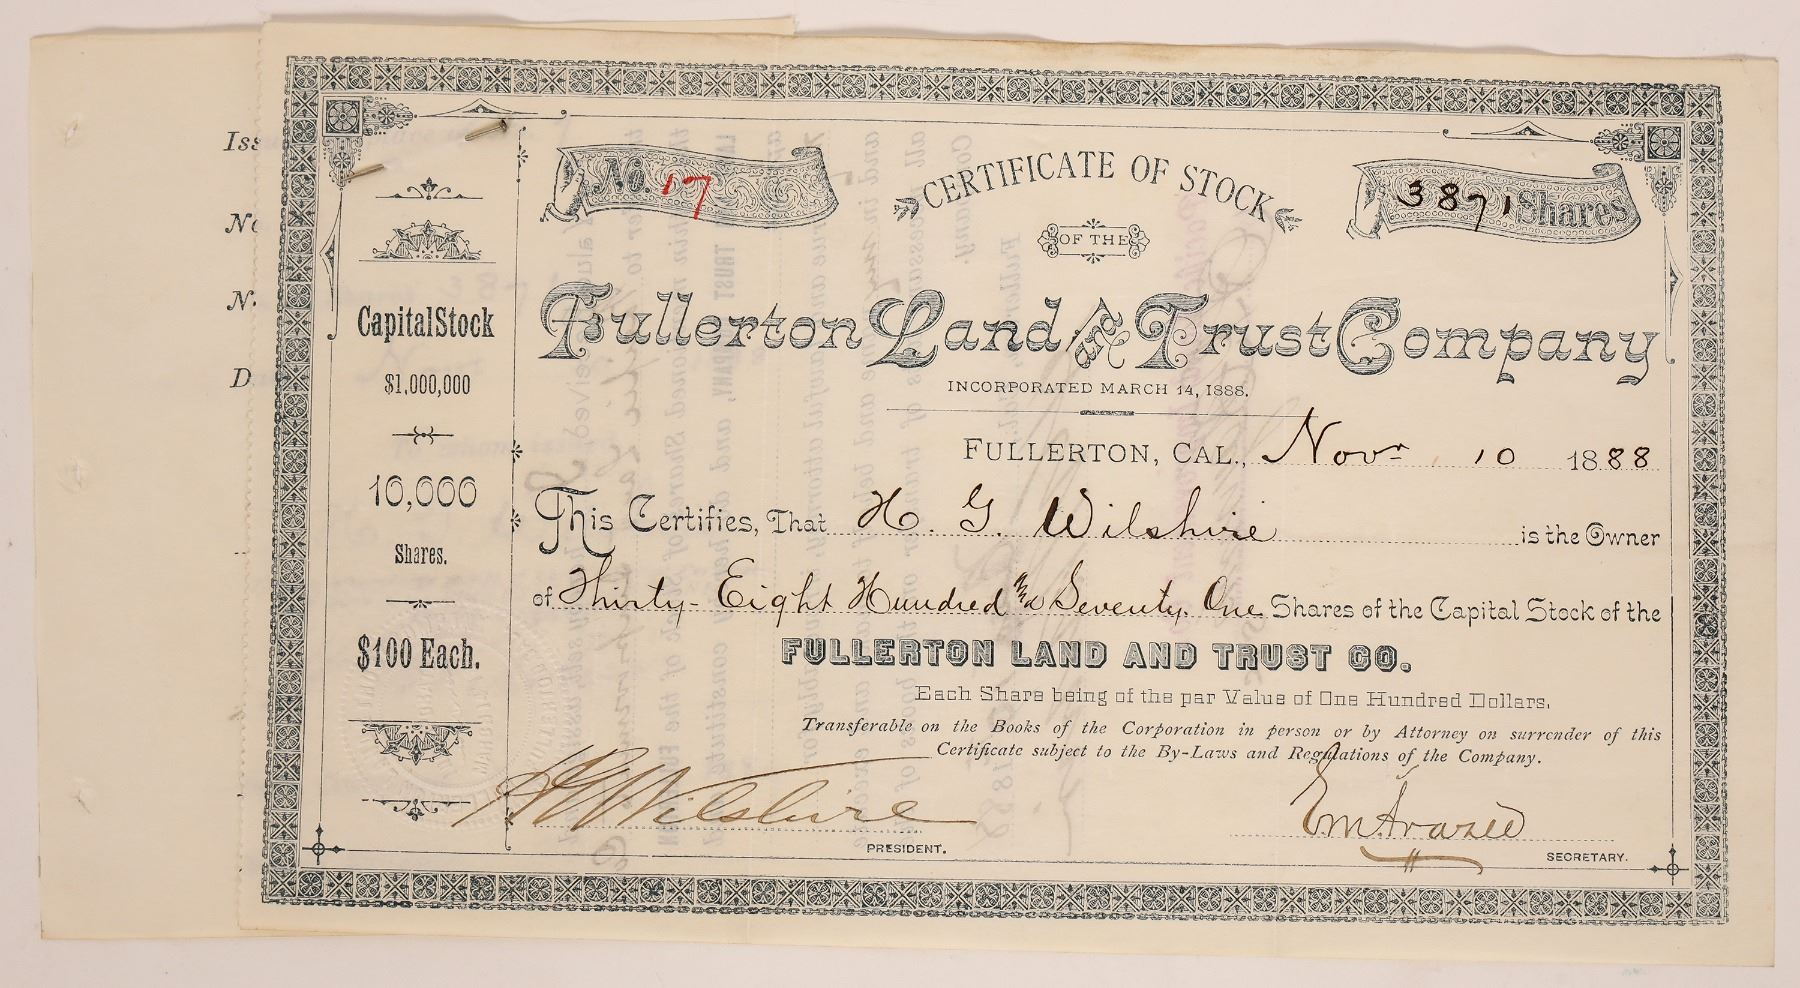 Iss
No. 17
CERTIFICATE OF STOCK
3871 Shares
OF THE
N
Capital Stock
Fullerton Land and Trust Company
$1,000,000
INCORPORATED MARCH 14, 1888.
D
FULLERTON, CAL., Nov 10 1888
10,000
This Certifies, That H. G. Wilshire is the Owner
Shares.
of Thirty-Eight Hundred and Seventy One Shares of the Capital Stock of the
$100 Each.
FULLERTON LAND AND TRUST CO.
Each Share being of the par Value of One Hundred Dollars,
Transferable on the Books of the Corporation in person or by Attorney on surrender of this
Certificate subject to the By-Laws and Regulations of the Company.
HGWilshire
PRESIDENT.
SECRETARY.